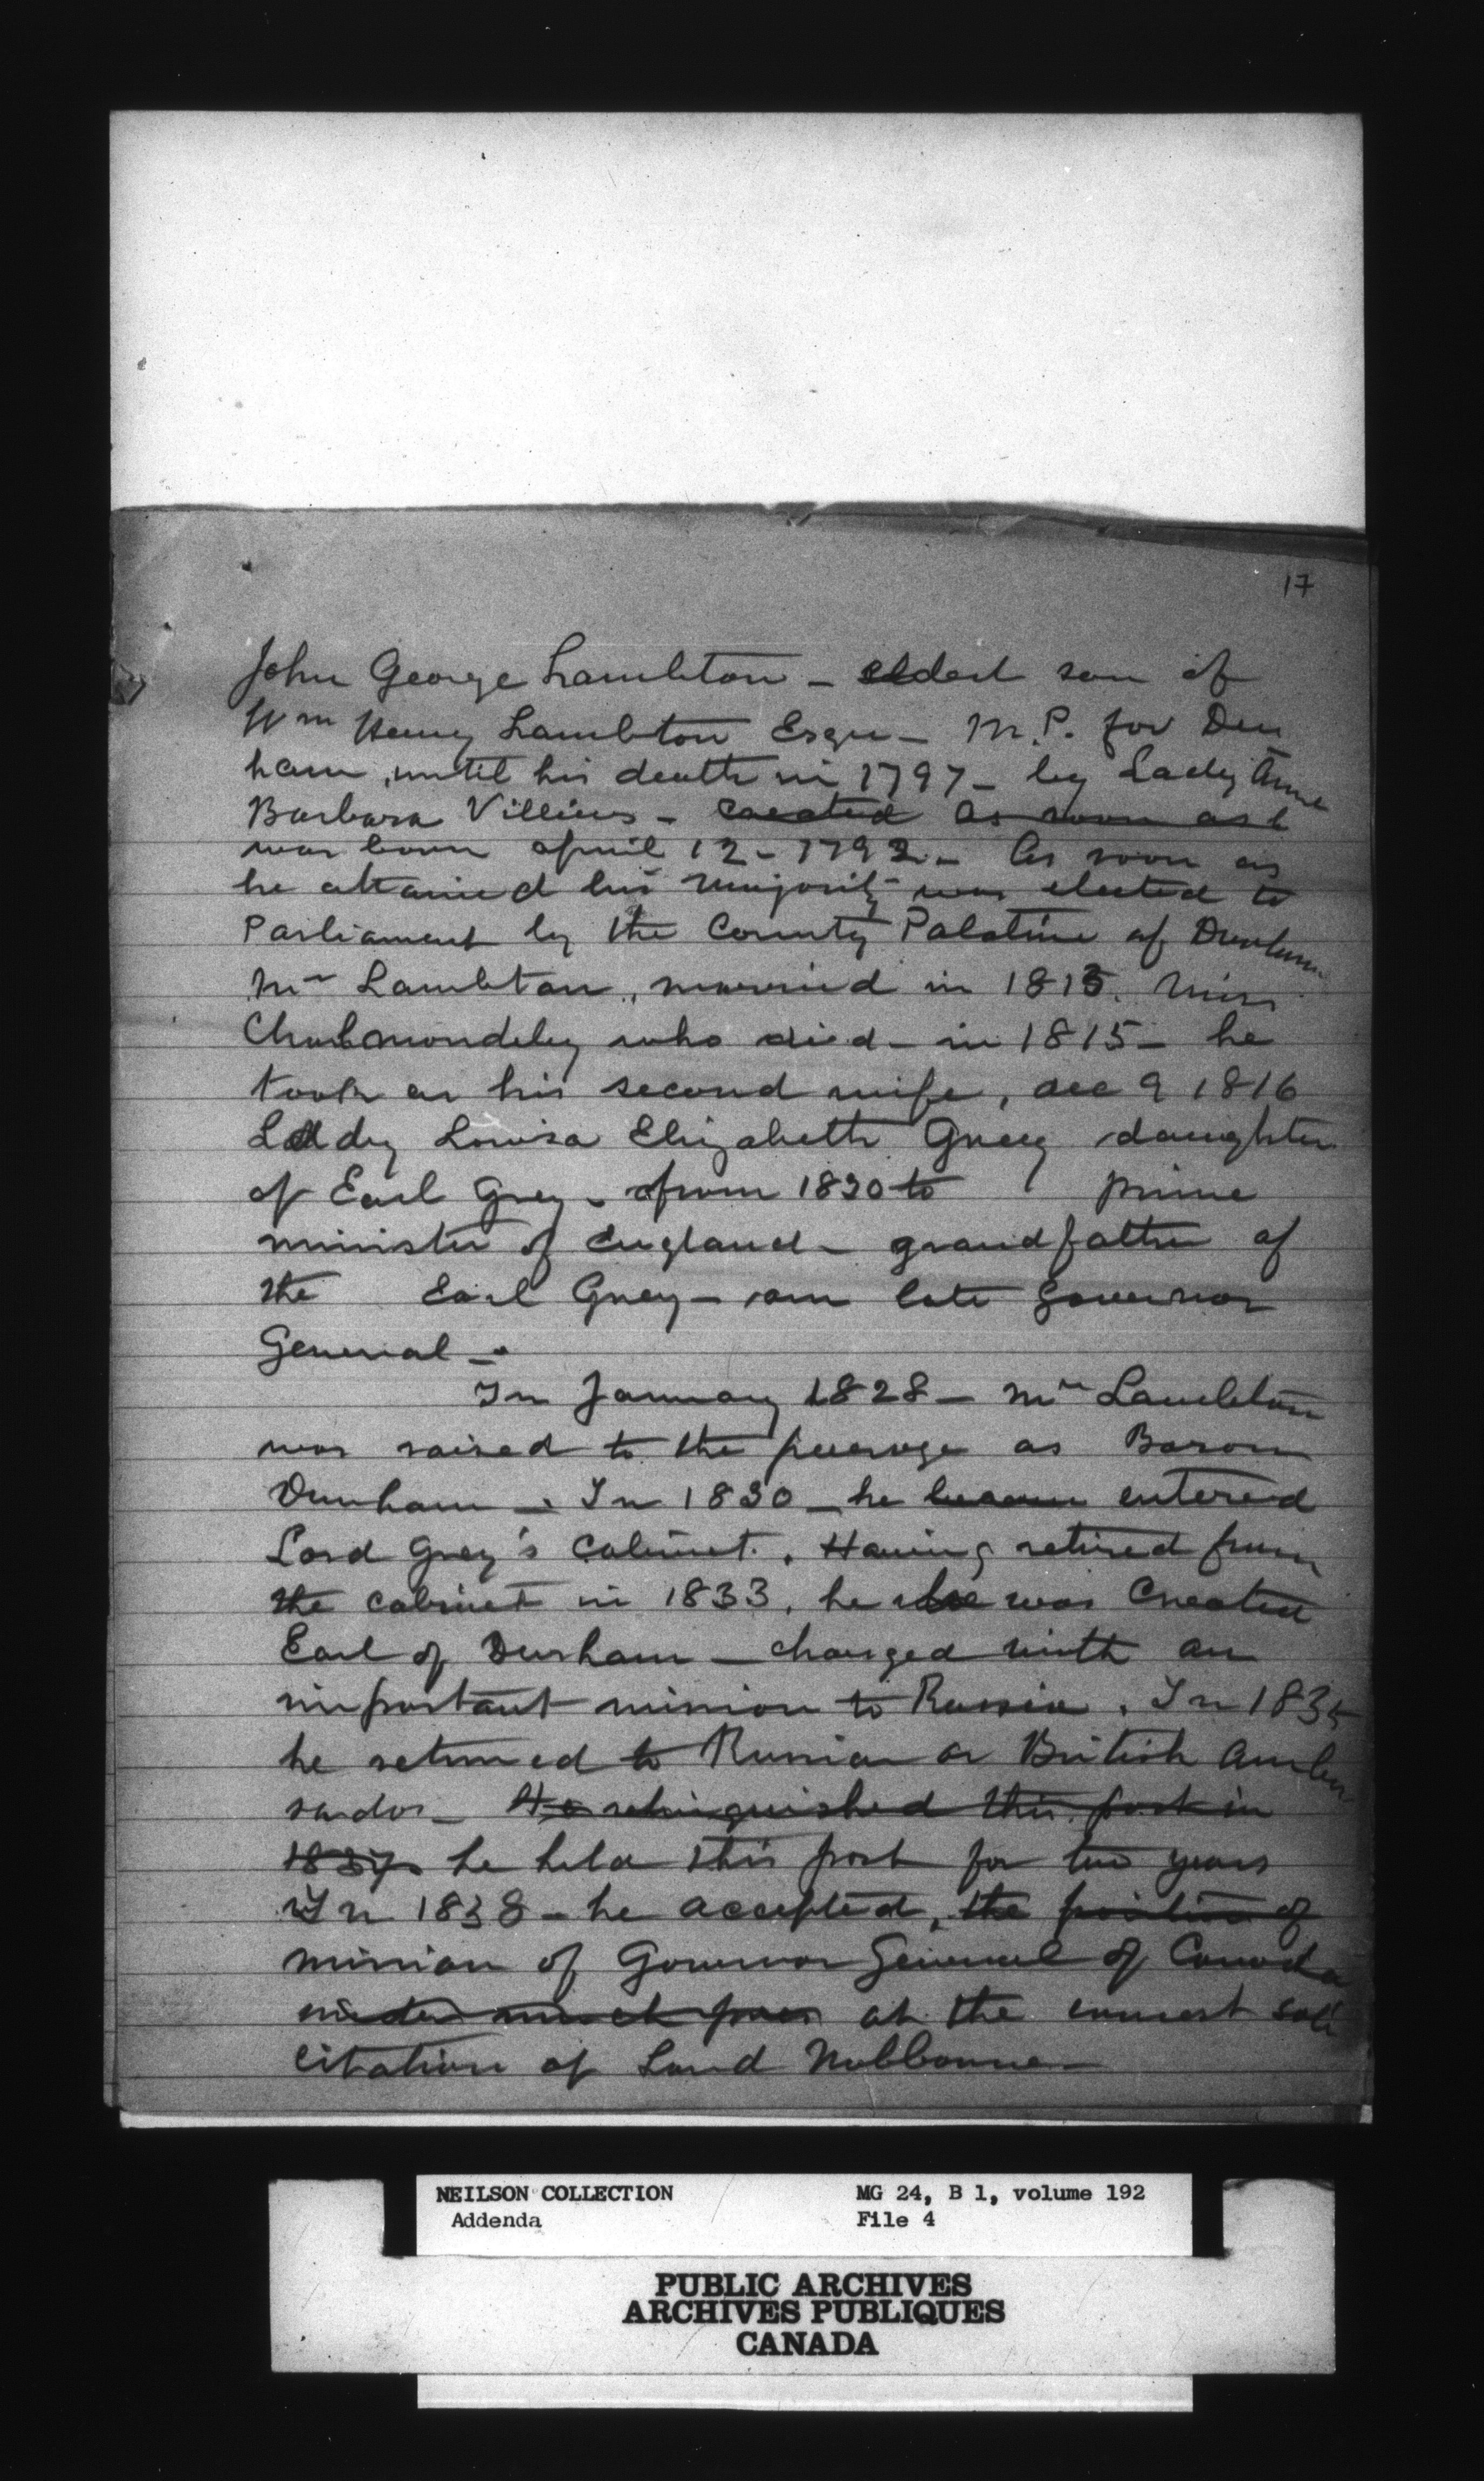 17
John George Lambton - eldest son of
Wm Henry Lambton Esqre - M.P. for Dur
ham, until his death in 1797 - by Lady Anne
Barbara Villiers - created As soon as h
was born April 12 - 1792 - As soon as
he attained his majority was elected to
Parliament by the County Palatine of Durham
Mr Lambton, married in 1813. Miss
Cholmondeley who died - in 1815 - he
took as his second wife, dec 9 1816
Lady Louisa Elizabeth Grey daughter
of Earl Grey - from 1830 to prime
minister of England - grandfather of
the Earl Grey - our late Governor
General -
In January 1828 - Mr Lambton
was raised to the peerage as Baron
Durham - In 1830 - he became entered
Lord Grey's Cabinet. Having retired from
the cabinet in 1833, he was created
Earl of Durham - charged with an
important mission to Russia. In 1835
he returned to Russia as British Ambas
sador - He relinquished this post in
1837 he held this post for two years
In 1838 - he accepted, the position of
mission of Governor General of Canada
at the earnest soli
citation of Lord Melbourne -
NEILSON COLLECTION MG 24, B 1, volume 192
Addenda File 4
PUBLIC ARCHIVES
ARCHIVES PUBLIQUES
CANADA